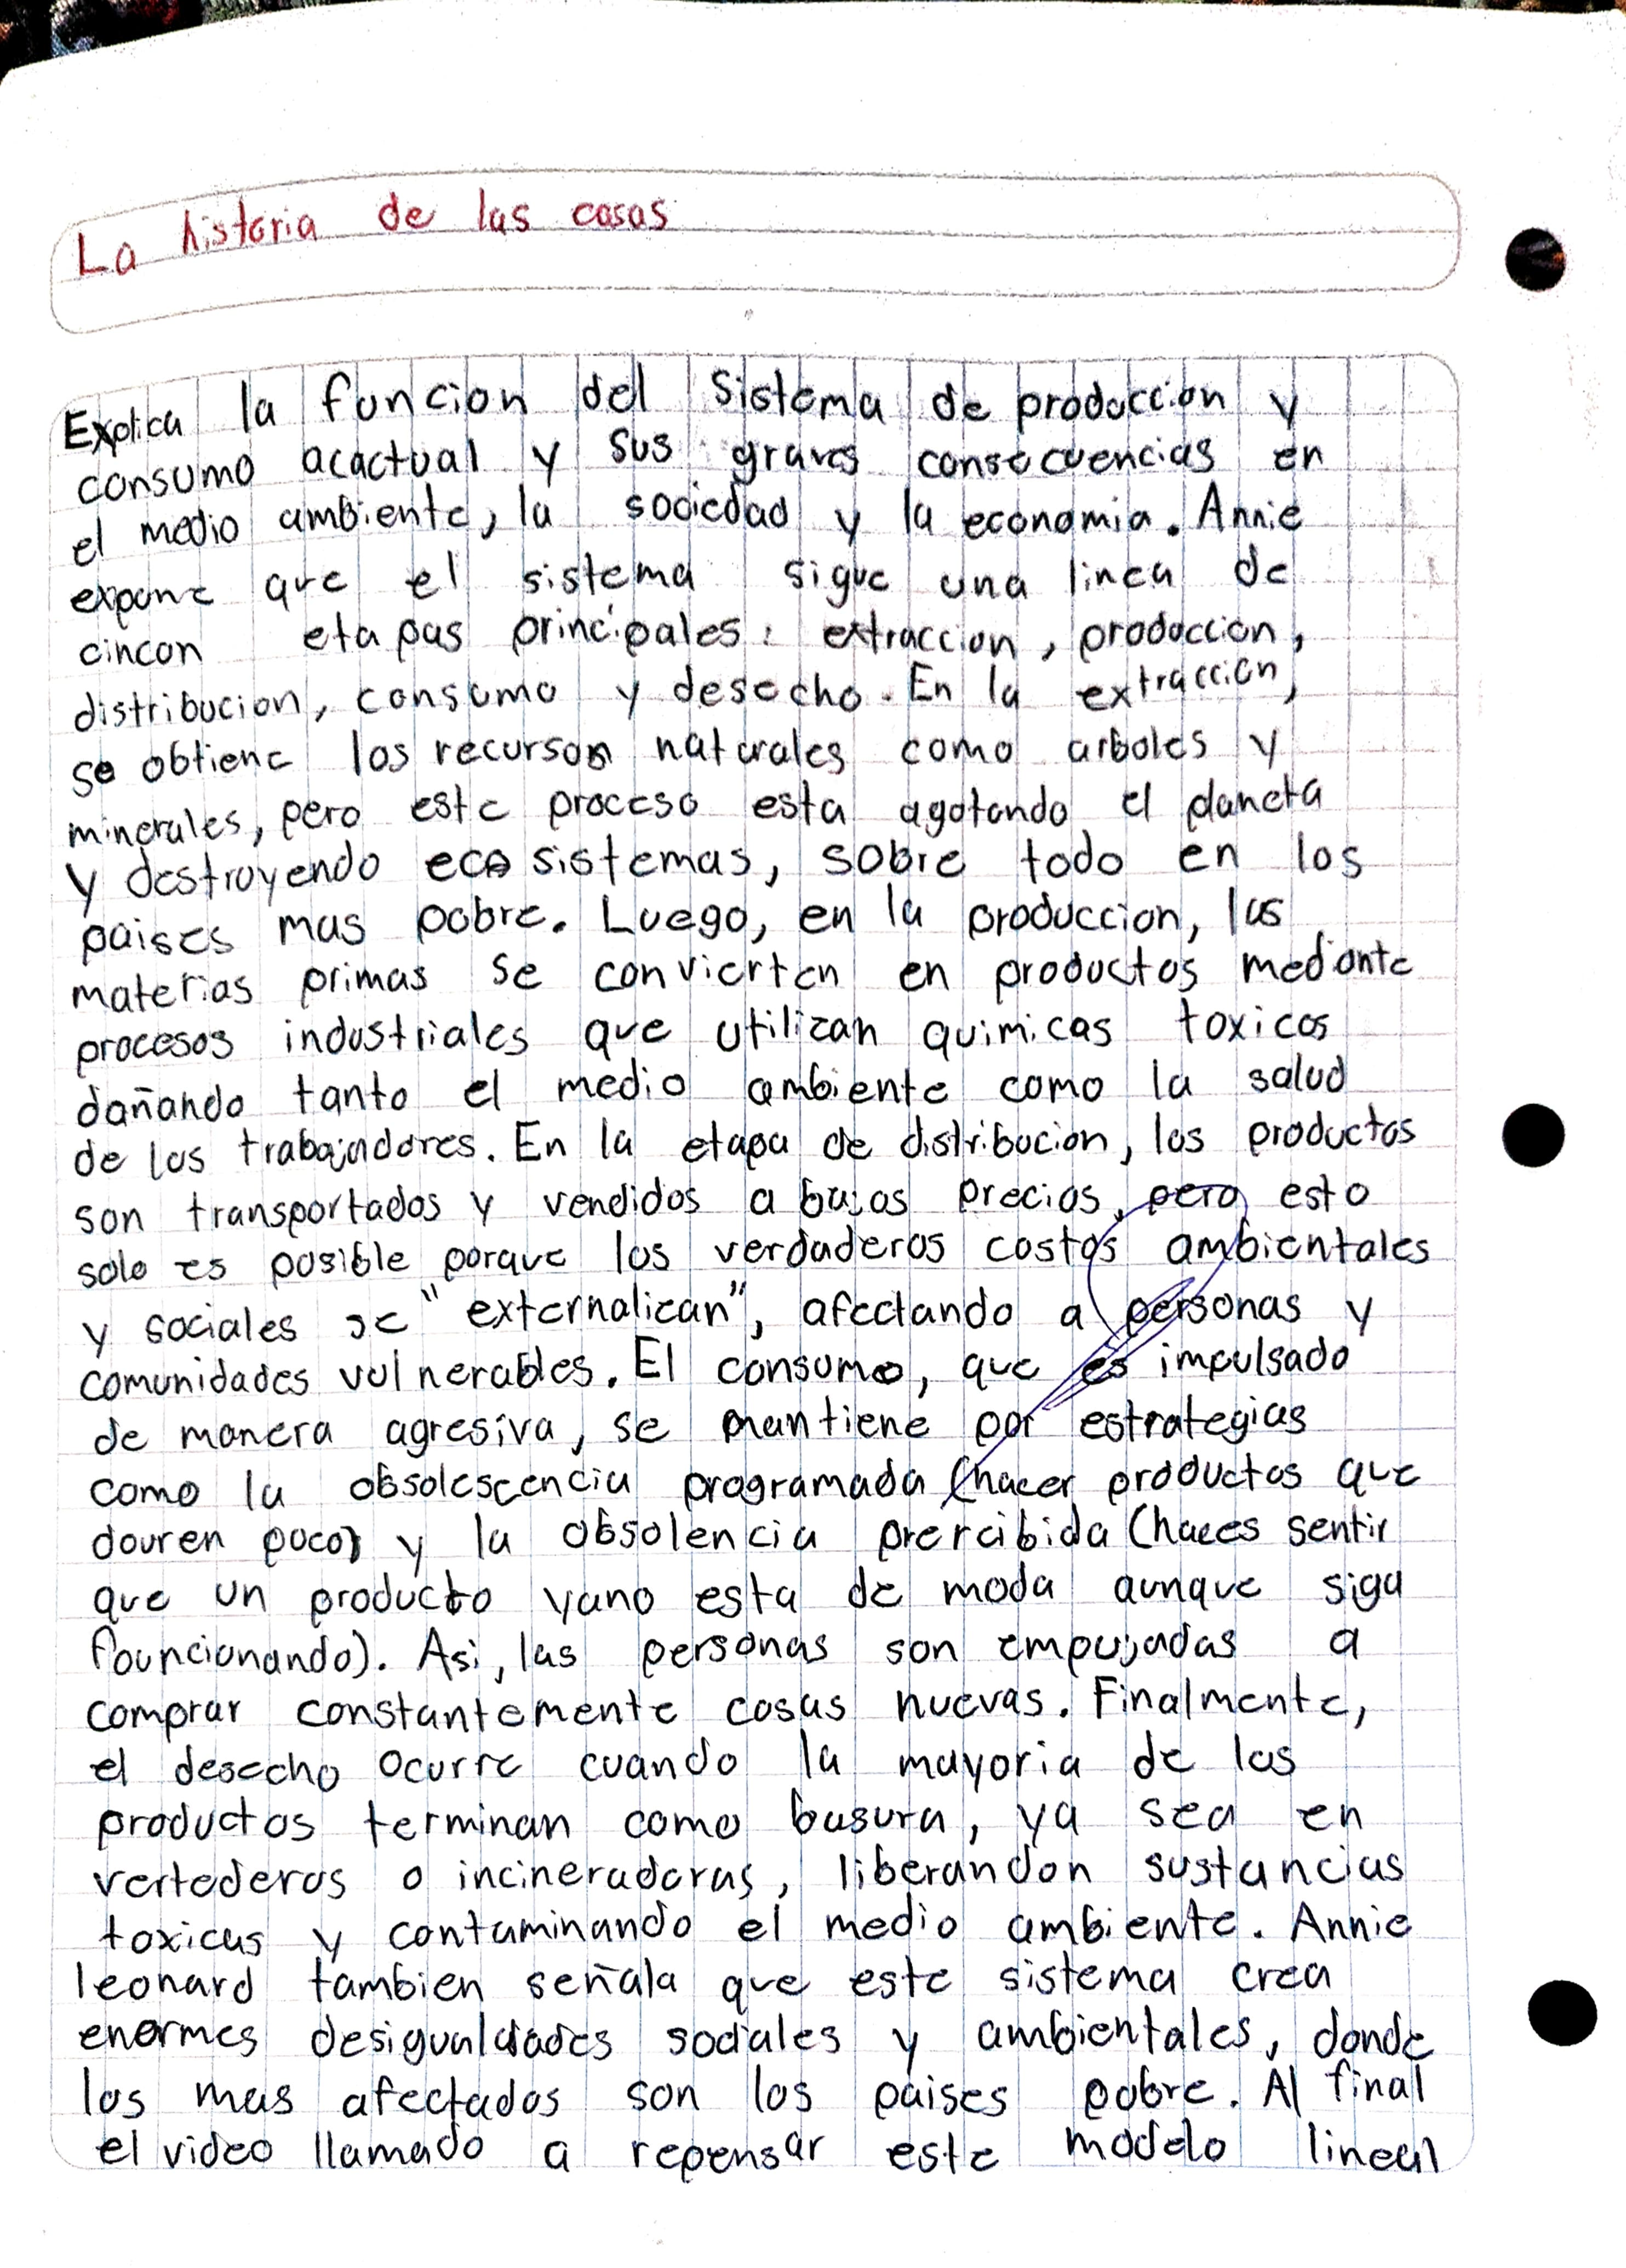 La historia de las cosas
Explica la funcion del Sistema de produccion y
consumo acactual y sus graves consecuencias en
el medio ambiente, la sociedad y la economia. Annie
expone que el sistema sigue una linea de
cincon etapas principales: extraccion, produccion,
distribucion, consumo y desecho. En la extraccion,
se obtiene los recurson naturales como arboles y
minerales, pero este proceso esta agotando el planeta
y destroyendo ecosistemas, sobre todo en los
paises mas pobre. Luego, en la produccion, las
materias primas se convierten en productos mediante
procesos industriales que utilizan quimicas toxicos
dañando tanto el medio ambiente como la salud
de los trabajadores. En la etapa de distribucion, los productos
son transportados y vendidos a bajos precios, pero esto
solo es posible porque los verdaderos costos ambientales
y sociales se "externalican", afectando a personas y
comunidades vulnerables. El consumo, que es impulsado
de manera agresiva, se mantiene por estrategias
como la obsolescencia programada (hacer productos que
douren poco) y la obsolencia prercibida (haces sentir
que un producto yano esta de moda aunque siga
founcionando). Asi, las personas son empujadas a
comprar constantemente cosas nuevas. Finalmente,
el desecho ocurre cuando la mayoria de los
productos terminan como basura, ya sea en
vertederos o incineradoras, liberandon sustancias
toxicas y contaminando el medio ambiente. Annie
leonard tambien señala que este sistema crea
enormes desigualdades sociales y ambientales, donde
los mas afectados son los paises pobre. Al final
el video llamado a repensar este modelo lineal